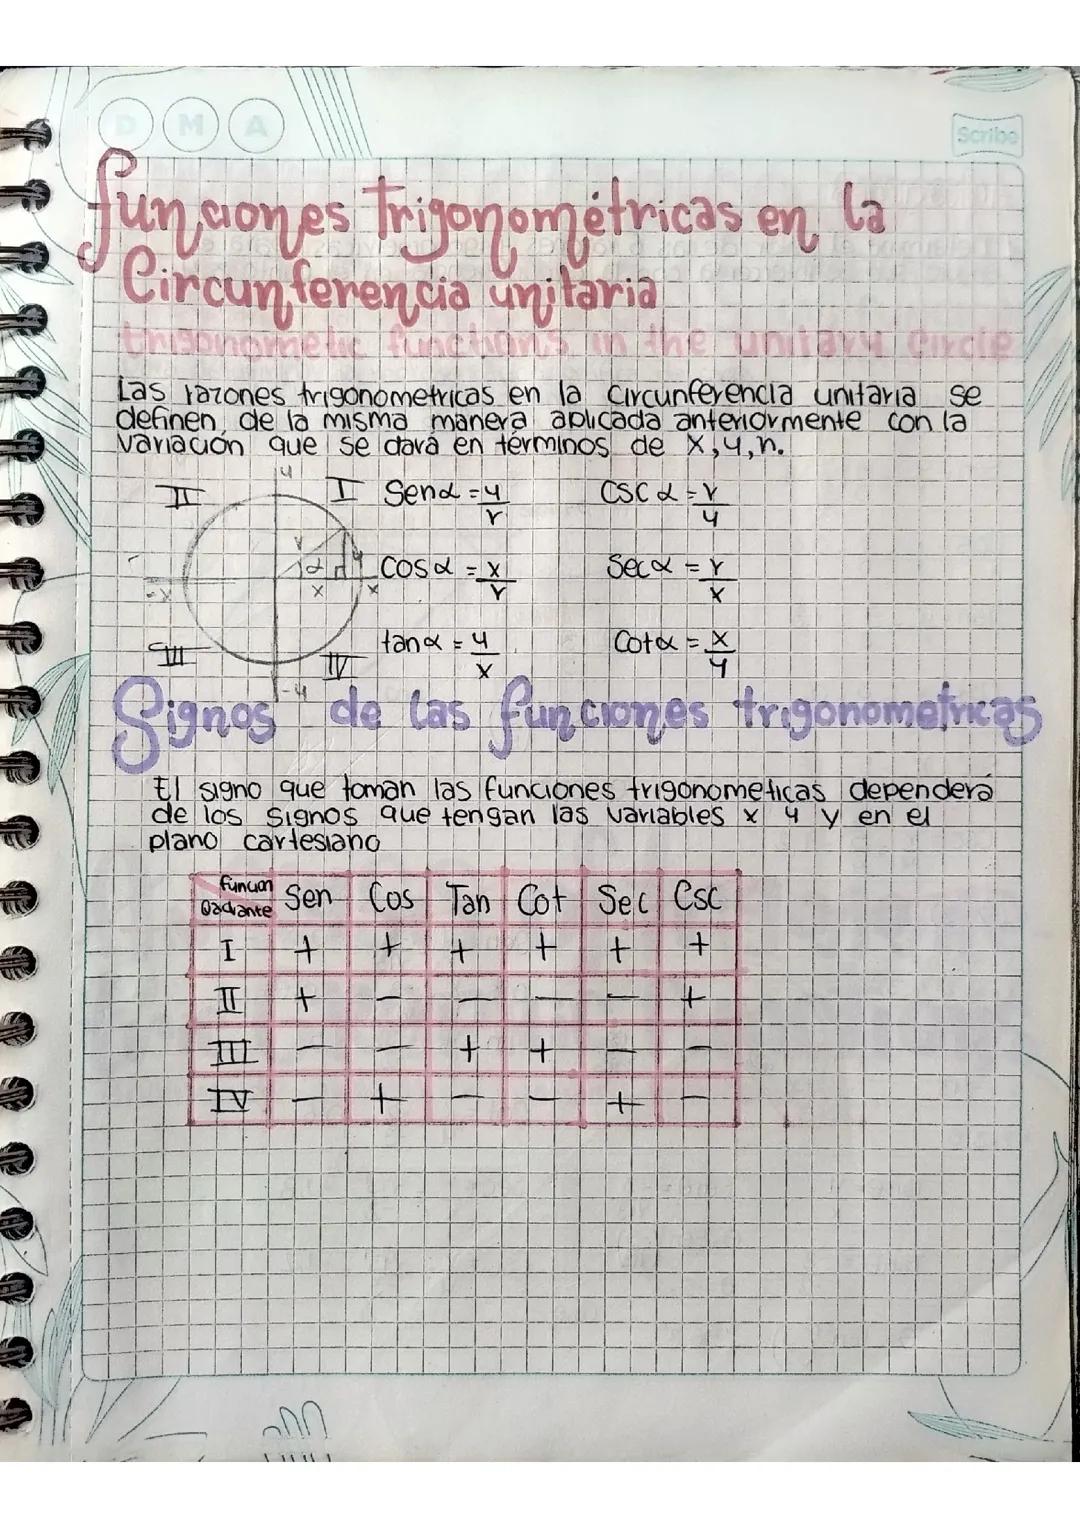 D M A
Scribe
funciones trigonométricas en la
Circunferencia unitaria
trigonometic functions in the unitary circle
Las razones trigonometricas en la circunferencia unitaria se
definen de la misma manera aplicada anteriormente con la
variación que se dará en términos de x, y, n.
y
II I Senα = y/r Csc α = r/y
r α y Cosα = x/r Secα = r/x
-x x x
III IV tanα = y/x Cotα = x/y
-y
Signos de las funciones trigonometricas
El signo que toman las funciones trigonometicas dependerá
de los signos que tengan las variables x y y en el
plano cartesiano
Funcion
Qadrante Sen Cos Tan Cot Sec Csc
I + + + + + +
II + - - - - +
III - - + + - -
IV - + - - + -